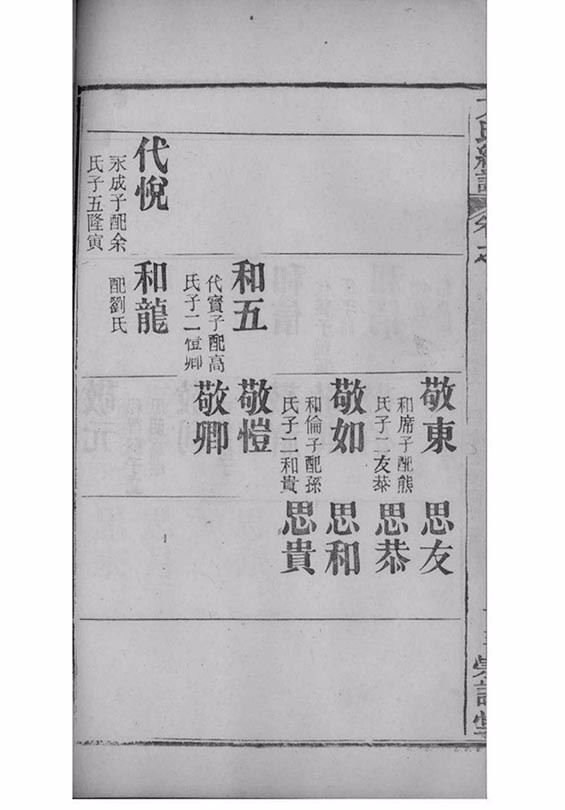 敬東
和席子配熊
氏子二友恭
思友
思恭
敬如
和倫子配孫
氏子二和貴
思和
思貴
和五
代實子配高
氏子二愷卿
敬愷
敬卿
代悅
永成子配余
氏子五隆寅
和龍
配劉氏